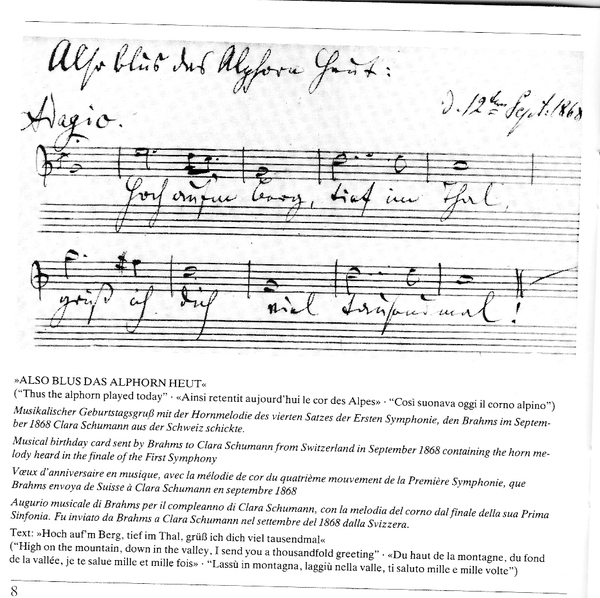 Also blus das Alphorn heut:
d. 12ten Sept. 1868
Adagio.
Hoch auf'm Berg, tief im Thal,
grüß ich dich viel tausendmal!
»ALSO BLUS DAS ALPHORN HEUT«
(“Thus the alphorn played today” · «Ainsi retentit aujourd'hui le cor des Alpes» · “Così suonava oggi il corno alpino”)
Musikalischer Geburtstagsgruß mit der Hornmelodie des vierten Satzes der Ersten Symphonie, den Brahms im Septem-
ber 1868 Clara Schumann aus der Schweiz schickte.
Musical birthday card sent by Brahms to Clara Schumann from Switzerland in September 1868 containing the horn me-
lody heard in the finale of the First Symphony
Vœux d'anniversaire en musique, avec la mélodie de cor du quatrième mouvement de la Première Symphonie, que
Brahms envoya de Suisse à Clara Schumann en septembre 1868
Augurio musicale di Brahms per il compleanno di Clara Schumann, con la melodia del corno dal finale della sua Prima
Sinfonia. Fu inviato da Brahms a Clara Schumann nel settembre del 1868 dalla Svizzera.
Text: »Hoch auf'm Berg, tief im Thal, grüß ich dich viel tausendmal«
(“High on the mountain, down in the valley, I send you a thousandfold greeting” · «Du haut de la montagne, du fond
de la vallée, je te salue mille et mille fois» · “Lassù in montagna, laggiù nella valle, ti saluto mille e mille volte”)
8